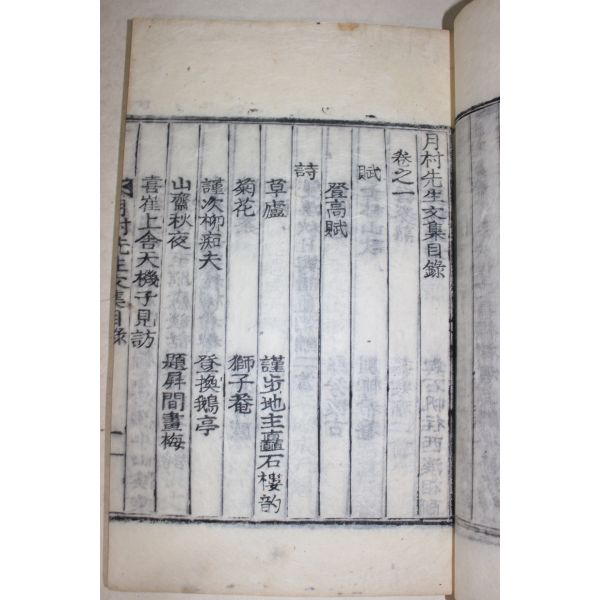 月村先生文集目錄
卷之一
賦
登高賦
詩
草廬
謹步地主矗石樓韵
菊花
獅子菴
謹次柳痴夫
登換鵝亭
山齋秋夜
題屛間畫梅
喜崔上舍大機子見訪
月村先生文集目錄
一